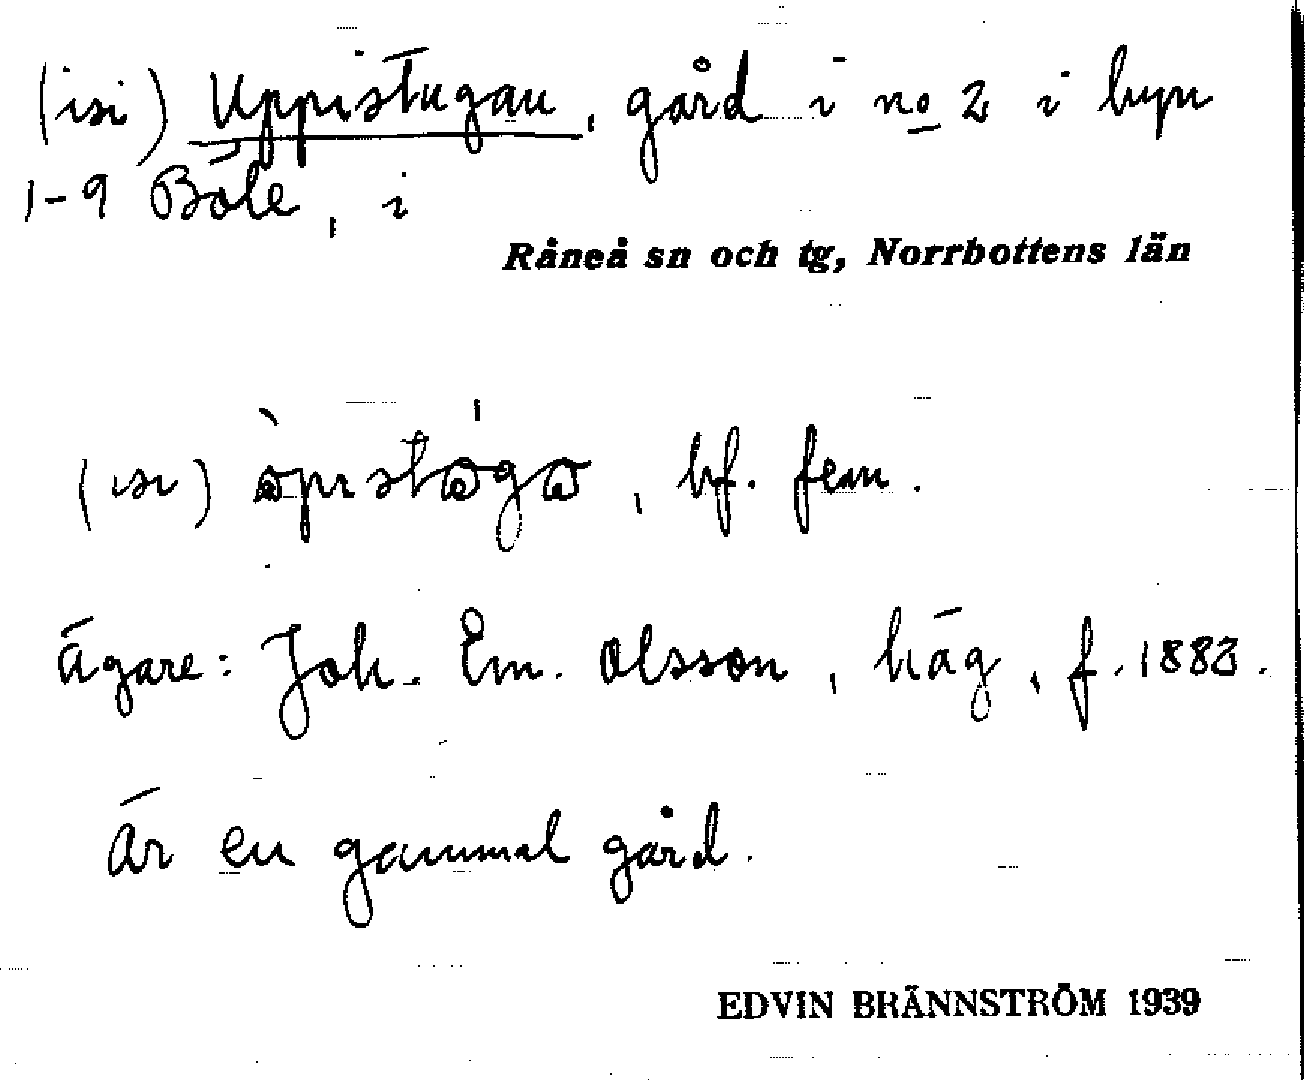 (isi) Uppistugan, gård i no 2 i byn
1-9 Böle, i
Råneå sn och tg, Norrbottens län
(isi) òpistóga, bf. fem.
Ägare: Joh. Em. Olsson, häg, f. 1883.
Är en gammal gård.
EDVIN BRÄNNSTRÖM 1939